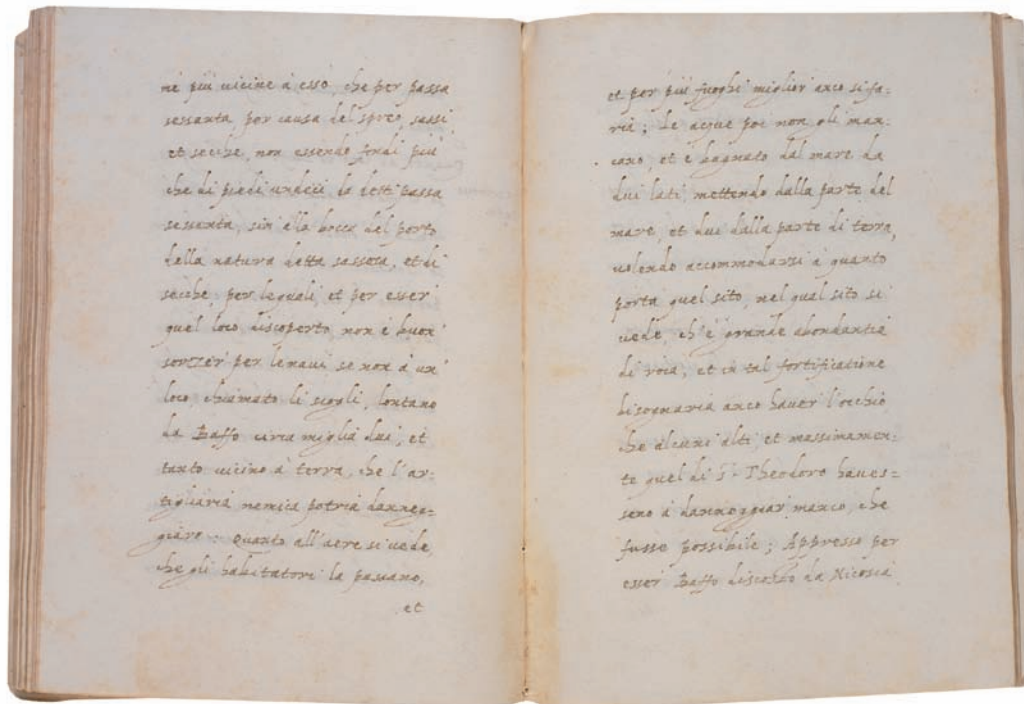 né più uicine à esso, che per passa
sessanta, per causa del spreo, sassi
et secche, non essendo fondi più
che di piedi undeci da detti passa
sessanta, sin alla bocca del porto
della natura detta sassosa, et di
secche, per lequali, et per esser
quel loco discoperto, non è buon
sorzer per le naui, se non à un
loco, chiamato li scogli, lontano
da Baffo circa miglia dui, et
tanto uicino à terra, che l'ar-
tigliaria nemica potria danneg=
giare: Quanto all'aere si uede,
che gli habitatori la passano,
et
et per più fuoghi miglior anco si fa=
ria; Le acque poi non gli man-
cano, et è bagnato dal mare da
dui lati, mettendo dalla parte del
mare, et dui dalla parte di terra,
uolendo accommodarsi à quanto
porta quel sito, nel qual sito si
uede, ch'è grande abondantia
di roca, et in tal fortificatione
bisognaria anco hauer l'occhio
che alcuni alti, et massimamen-
te quel di S. Theodoro haues=
seno à danneggiar manco, che
fusse possibile; Appresso per
esser Baffo discosto da Nicosia